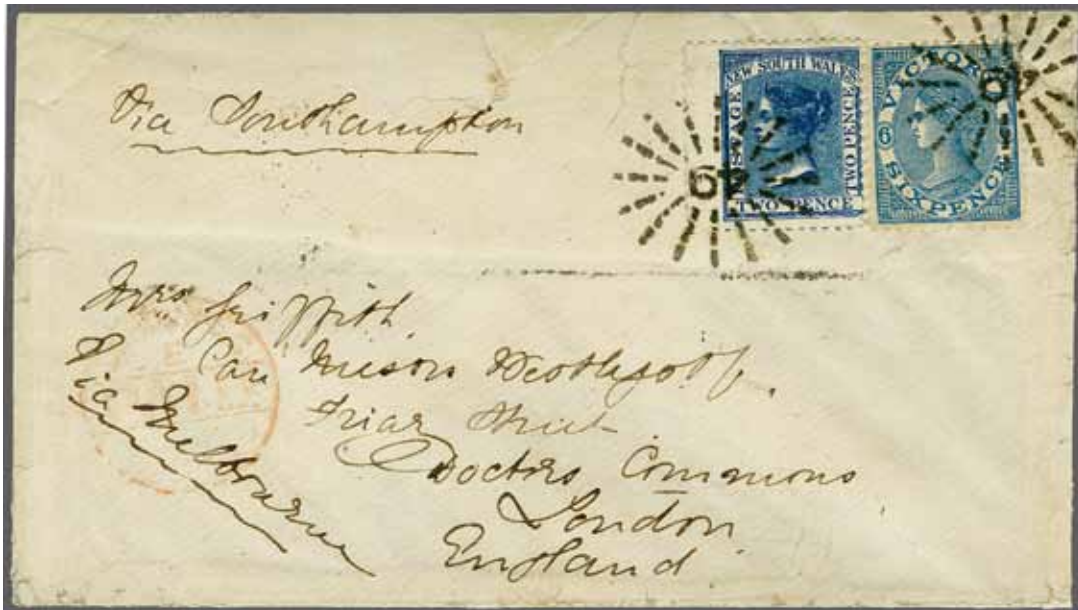 Via Southampton
NEW SOUTH WALES
POSTAGE
TWO PENCE
TWO PENCE
VICTORIA
6
SIXPENCE
64
Mrs Griffith
Care
Friar Street
Doctors Commons
London
England
Via Melbourne